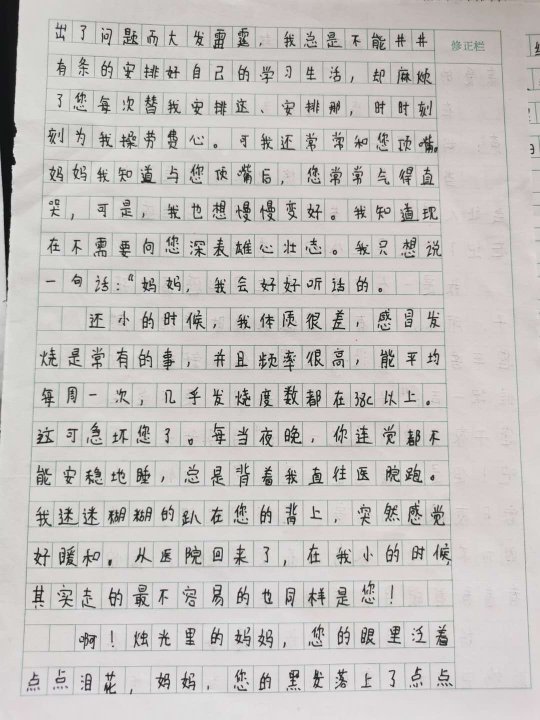 出了问题而大发雷霆，我总是不能井井
修正栏
有条的安排好自己的学习生活，却麻烦
了您每次替我安排这、安排那，时时刻
刻为我操劳费心。可我还常常和您顶嘴。
妈妈我知道与您顶嘴后，您常常气得直
哭，可是，我也想慢慢变好。我知道现
在不需要向您深表雄心壮志。我只想说
一句话：“妈妈，我会好好听话的。
还小的时候，我体质很差，感冒发
烧是常有的事，并且频率很高，能平均
每周一次，几乎发烧度数都在38c以上。
这可急坏您了。每当夜晚，你连觉都不
能安稳地睡，总是背着我直往医院跑。
我迷迷糊糊的趴在您的背上，突然感觉
好暖和。从医院回来了，在我小的时候
其实走的最不容易的也同样是您！
啊！烛光里的妈妈，您的眼里泛着
点点泪花，妈妈，您的黑发落上了点点